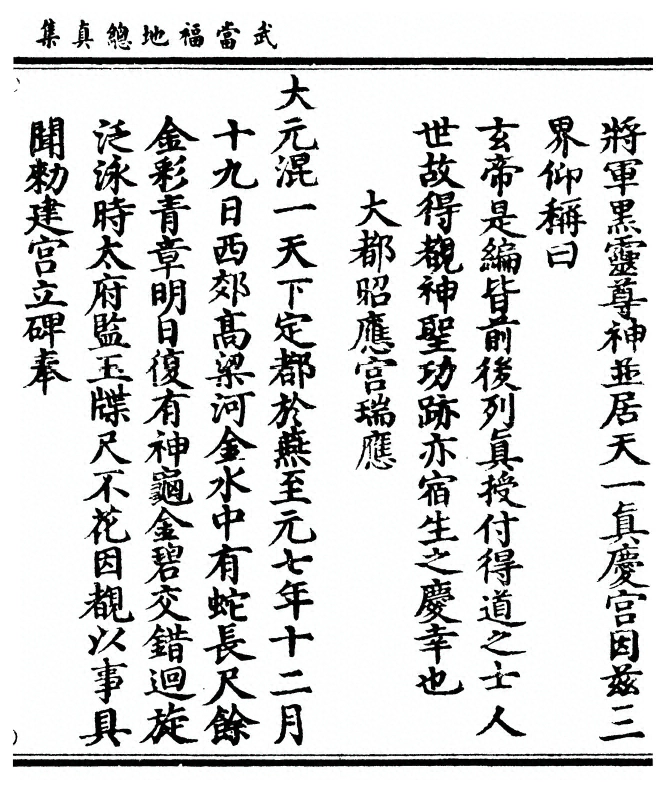 武當福地總真集
將軍黑靈尊神並居天一真慶宮因茲三
界仰稱曰
玄帝是編皆前後列真授付得道之士人
世故得觀神聖功跡亦宿生之慶幸也
大都昭應宮瑞應
大元混一天下定都於燕至元七年十二月
十九日西郊高梁河金水中有蛇長尺餘
金彩青章明日復有神龜金碧交錯迴旋
泛泳時太府監玉牒尺不花因覩以事具
聞勑建宮立碑奉